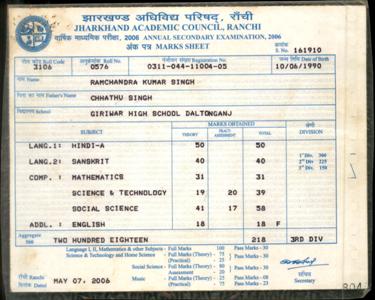 झारखण्ड अधिविद्य परिषद्, राँची
JHARKHAND ACADEMIC COUNCIL, RANCHI
वार्षिक माध्यमिक परीक्षा, 2006 ANNUAL SECONDARY EXAMINATION, 2006
अंक पत्र MARKS SHEET
क्रमांक
S. No. 161910
रौल कोड Roll Code अनुक्रमांक Roll No. पंजीयन संख्या Registration No. जन्म तिथि Date of Birth
3106 0576 0311-044-11004-05 10/06/1990
नाम Name
RAMCHANDRA KUMAR SINGH
पिता का नाम Father's Name
CHHATHU SINGH
विद्यालय School
GIRIWAR HIGH SCHOOL DALTONGANJ
विषय SUBJECT MARKS OBTAINED श्रेणी DIVISION
THEORY PRACT./ASSESSMENT TOTAL
LANG.1: HINDI-A 50 50
LANG.2: SANSKRIT 40 40
COMP. : MATHEMATICS 31 31
SCIENCE & TECHNOLOGY 19 20 39
SOCIAL SCIENCE 41 17 58
ADDL. : ENGLISH 18 18 F
1st Div. 300
2nd Div 225
3rd Div 150
Aggregate
500
TWO HUNDRED EIGHTEEN 218 3RD DIV
Language I, II, Mathematics & other Subjects - Full Marks 100 Pass Marks - 30
Science & Technology and Home Science - Full Marks (Theory) - 75 Pass Marks - 23
(Practical) - 25
Social Science - Full Marks (Theory) - 80
Assessment - 20
Music - Full Marks (Theory) - 25
(Practical) - 75 Pass Marks - 23
राँची Ranchi
दिनांक Date MAY 07, 2006
सचिव
Secretary
804